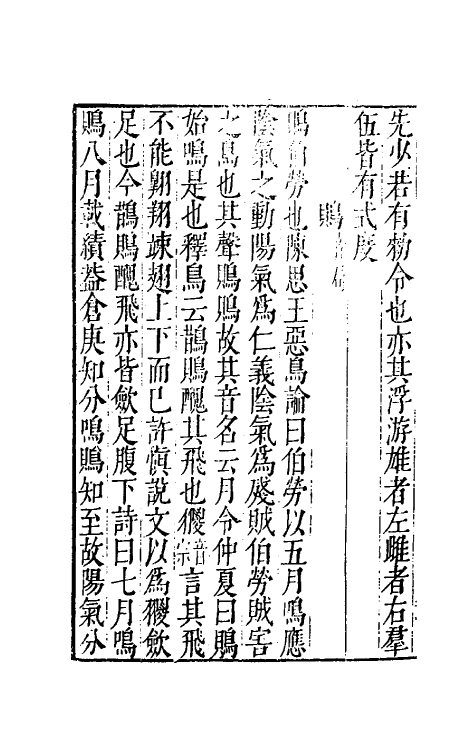 先少若有勑令也亦其浮游雄者左雌者右羣
伍皆有式度
鵙
鵙伯勞也陳思王惡鳥論曰伯勞以五月鳴應
陰氣之動陽氣爲仁義陰氣爲殘賊伯勞賊害
之鳥也其聲鵙鵙故其音名云月令仲夏曰鵙
始鳴是也釋鳥云鵲鵙醜其飛也猣音宗言其飛
不能翺翔竦翅上下而已許愼說文以爲猣歛
足也今鵲鵙醜飛亦皆歛足腹下詩曰七月鳴
鵙八月載績葢倉庚知分鳴鵙知至故陽氣分